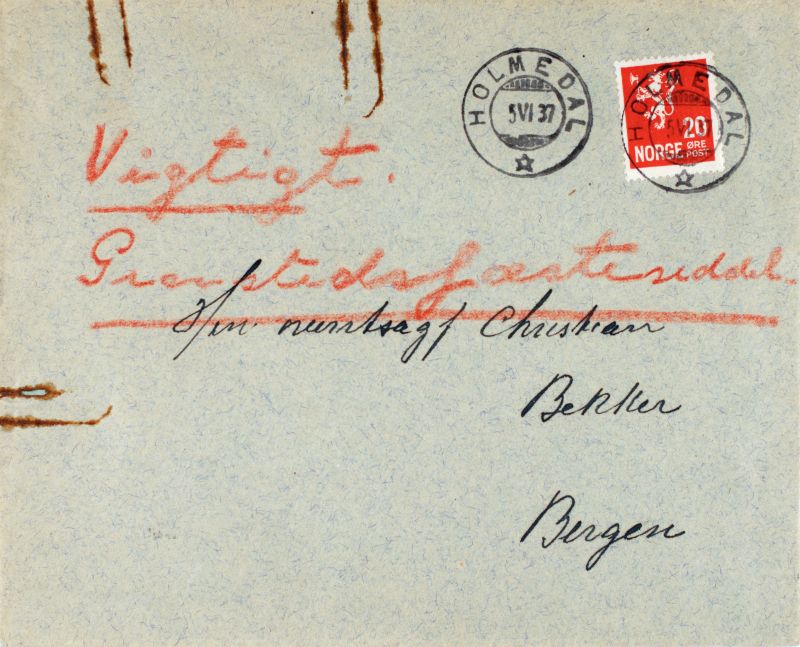 HOLMEDAL
5 VI 37
HOLMEDAL
5 VI 37
20
NORGE ØRE
POST
Vigtigt.
Grønstedsfæsteseddel.
Hrr. Christian
Bekker
Bergen